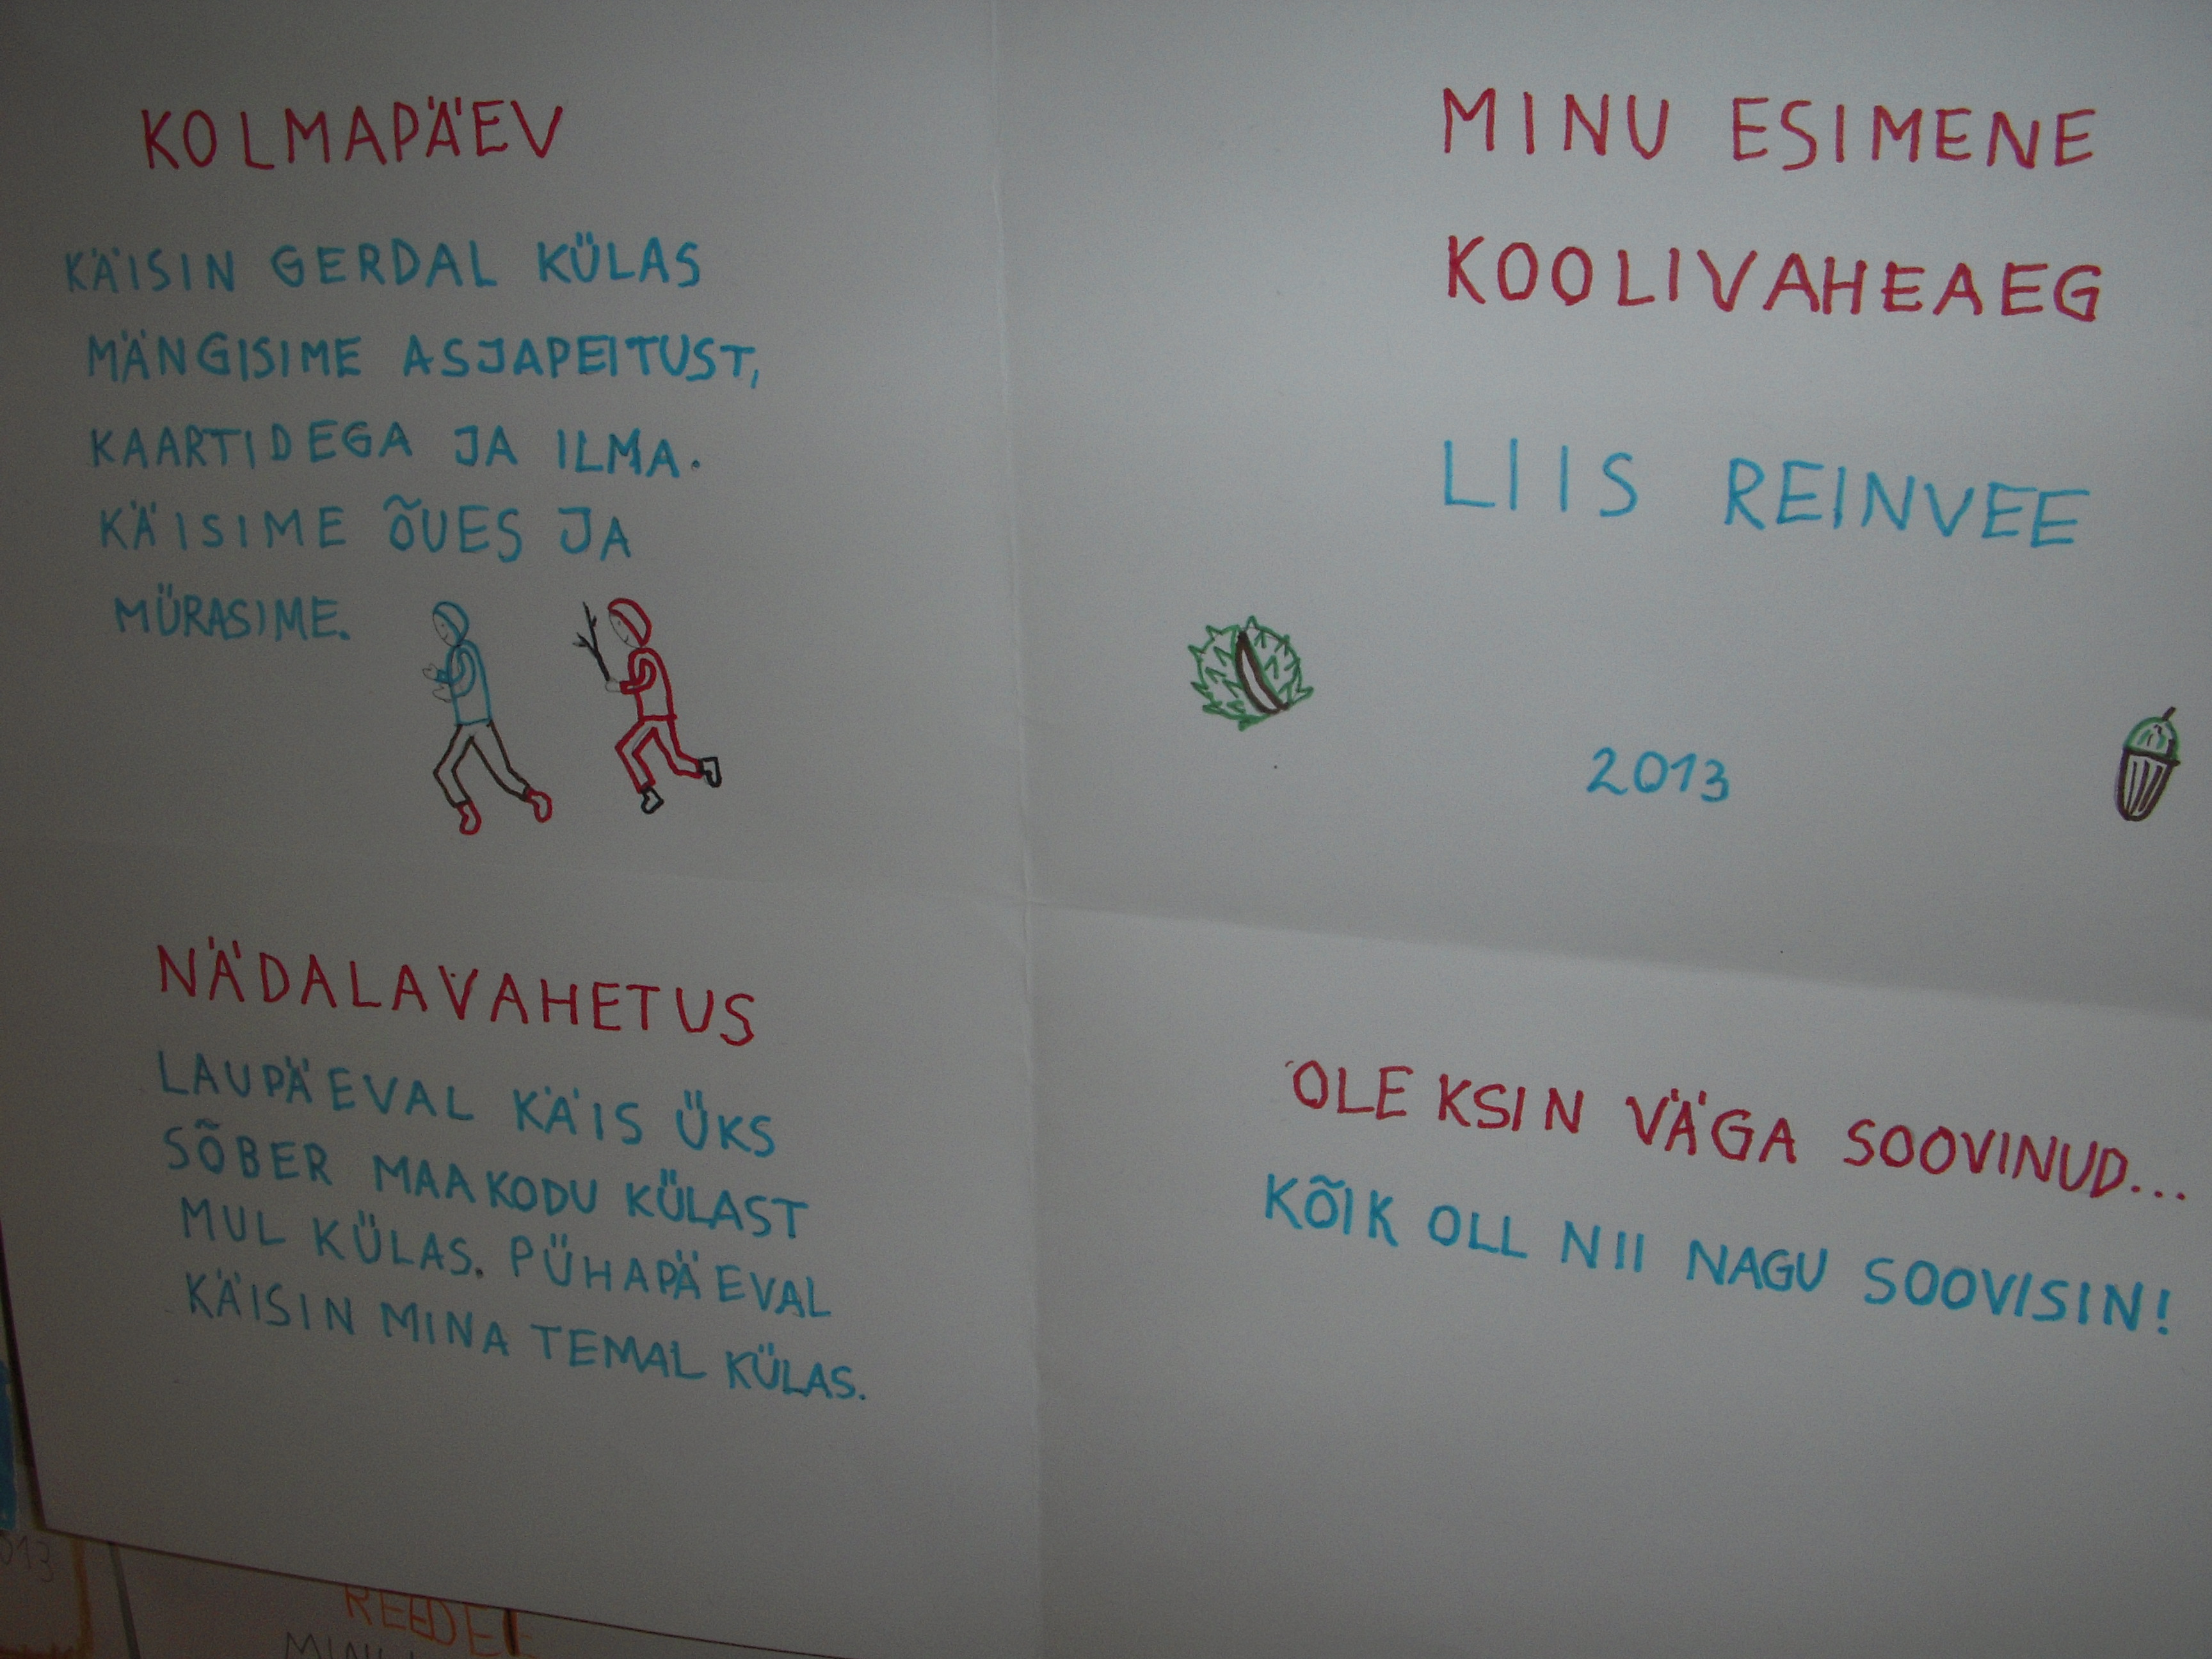 KOLMAPÄEV
KÄISIN GERDAL KÜLAS
MÄNGISIME ASJAPEITUST,
KAARTIDEGA JA ILMA.
KÄISIME ÕUES JA
MÜRASIME.
MINU ESIMENE
KOOLIVAHEAEG
LIIS REINVEE
2013
NÄDALAVAHETUS
LAUPÄEVAL KÄIS ÜKS
SÕBER MAAKODU KÜLAST
MUL KÜLAS. PÜHAPÄEVAL
KÄISIN MINA TEMAL KÜLAS.
OLEKSIN VÄGA SOOVINUD...
KÕIK OLL NII NAGU SOOVISIN!
013
REEDEL